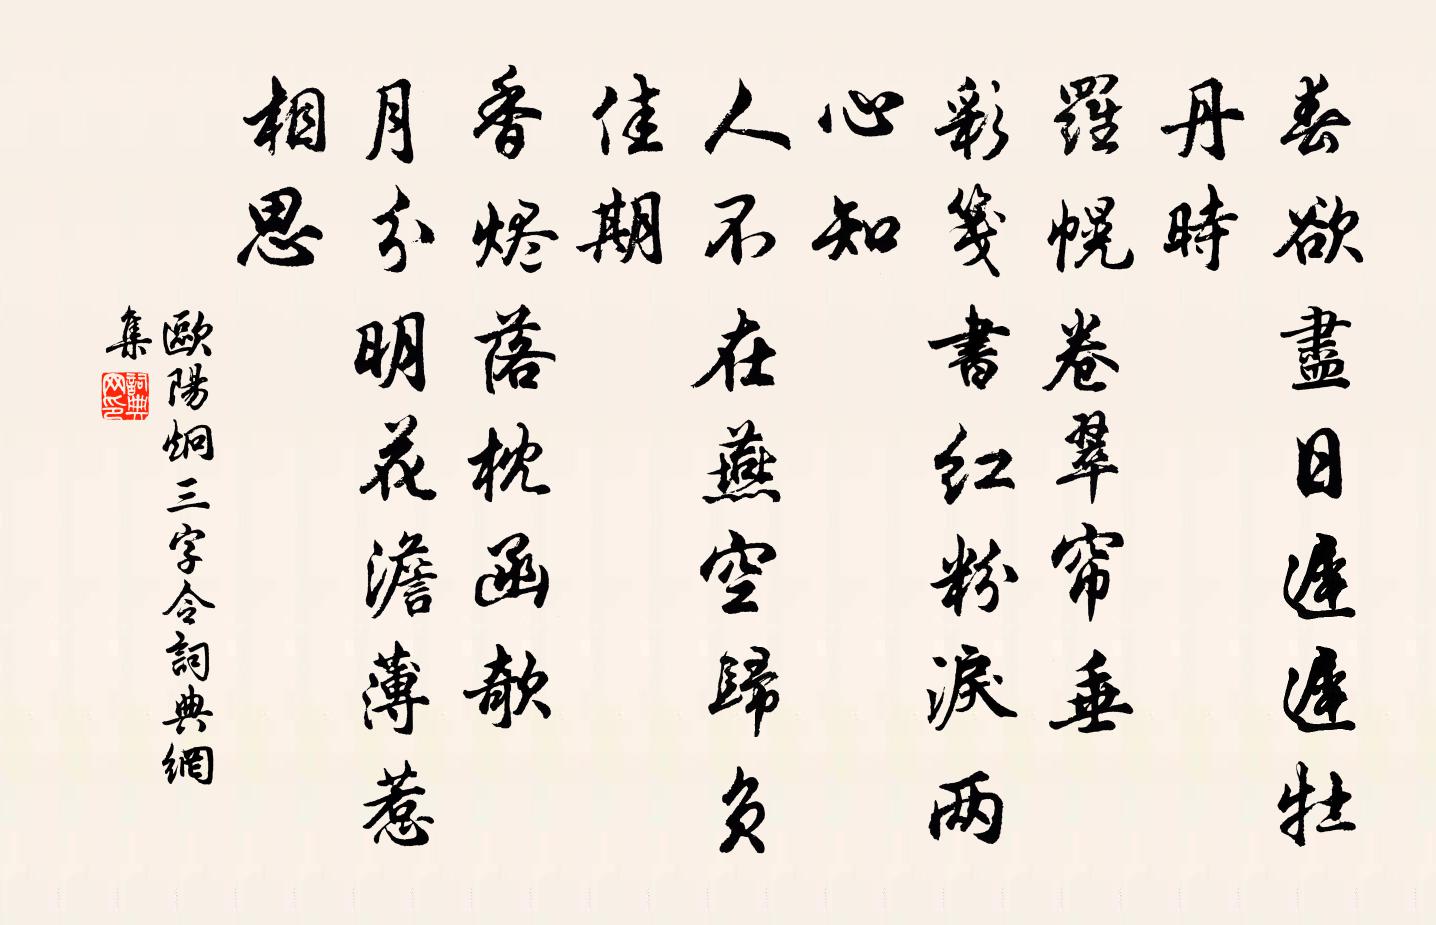 春欲盡日遲遲牡
丹時
羅幌卷翠帘垂
彩箋書紅粉淚两
心知
人不在燕空歸負
佳期
香烬落枕函欹
月分明花澹薄惹
相思
歐陽炯三字令詞典網
集
詞典
网印